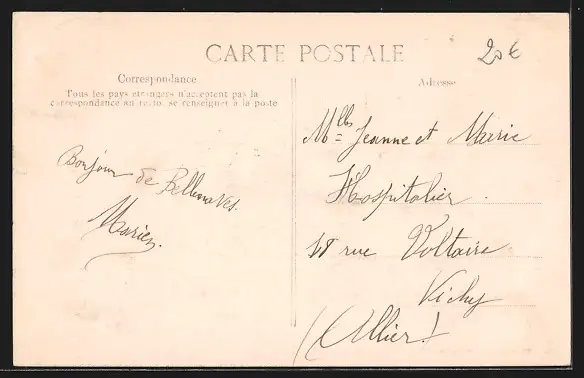 CARTE POSTALE
20€
Correspondance
Tous les pays étrangers n'acceptent pas la
correspondance au recto, se renseigner à la poste
Adresse
Mlles Jeanne et Marie
Hospitalier
18 rue Voltaire
Vichy
(Allier)
Bonjour de Bellenaves.